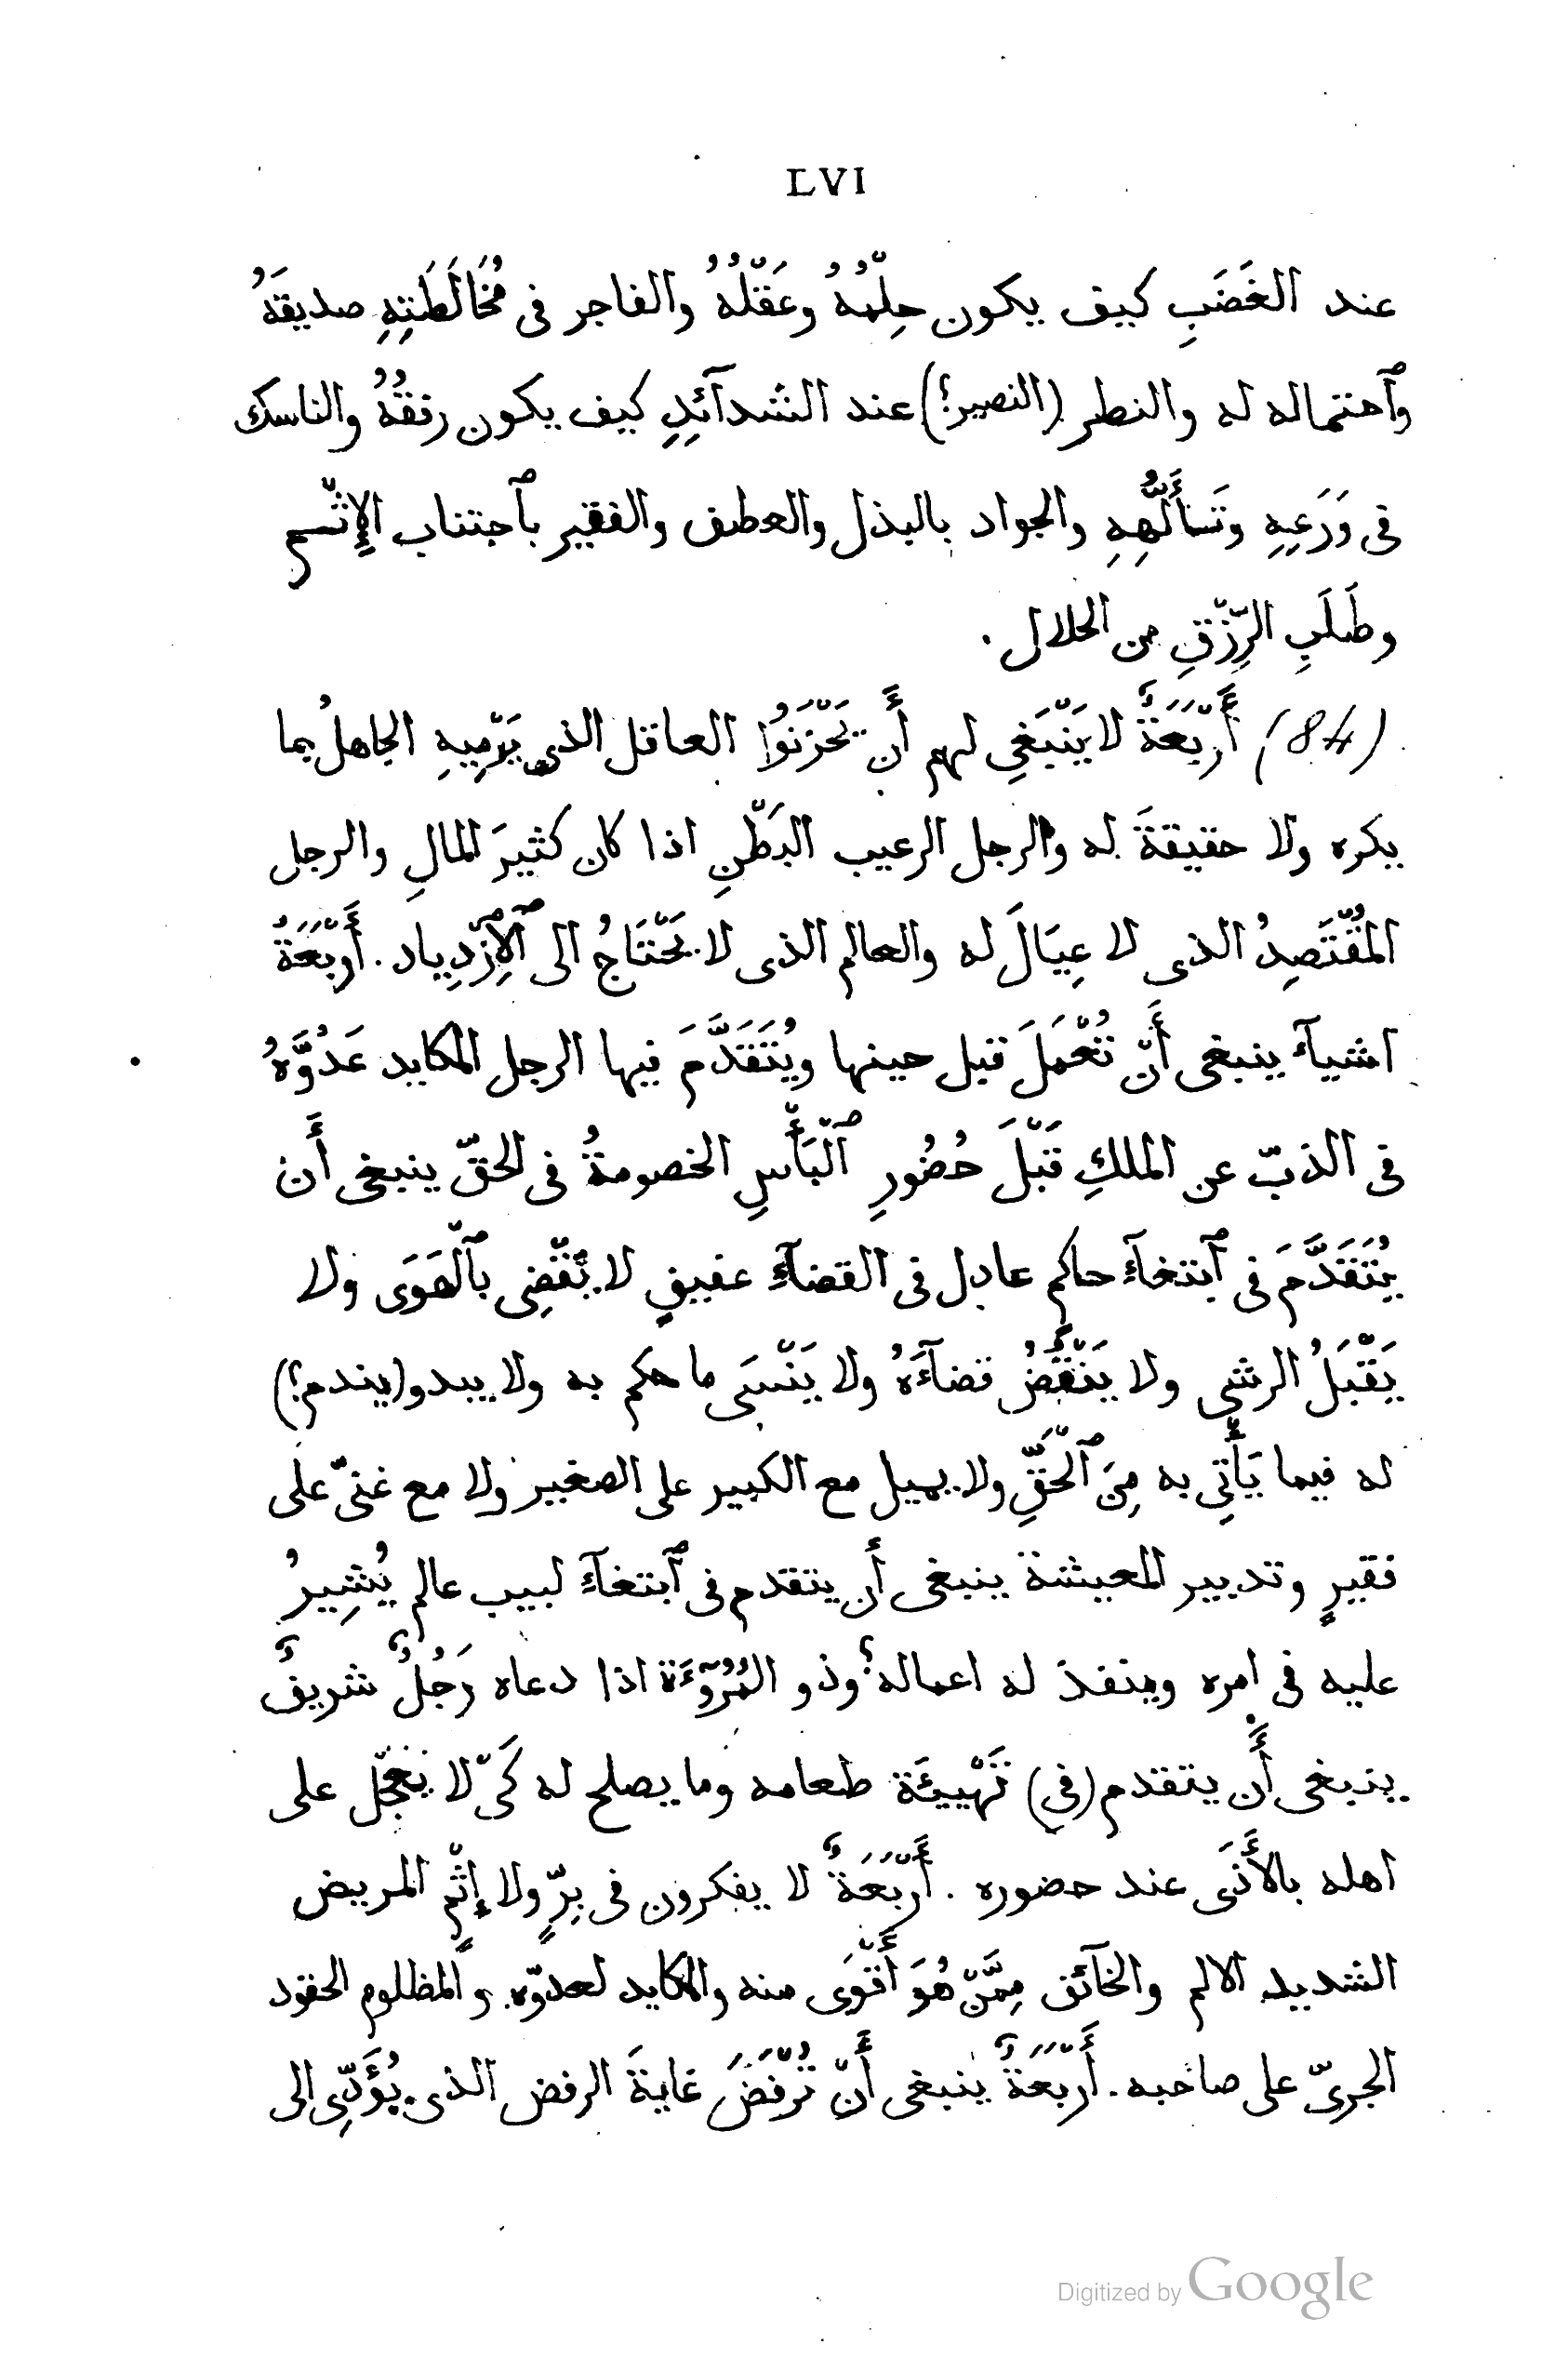 LVI
عند الغَضَبِ كيف يكون حِلْمُهُ وعَقْلُهُ والفاجر فى مُخَالَطَتِهِ صديقَهُ
وٱحتماله له والنطر (النصير؟) عند الشدآئِدِ كيف يكون رفقُهُ والناسك
فى وَرَعِهِ وتَسَأَلُّهِهِ والجواد بالبذل والعطف والفقير بٱجتناب الإِثْم
وطَلَبِ الرِّزْقِ من الحلال .
(84) أَرْبَعَةٌ لا يَنْبَغِي لهم أَن يَحْزَنُوا العاقل الذى يَرْمِيهِ الجاهلُ بما
يكره ولا حقيقةَ له والرجل الرعيب البَطْنِ اذا كان كثيرَ المالِ والرجل
المُقْتَصِدُ الذى لا عِيَالَ له والعالم الذى لا يَحْتَاجُ الى ٱلِٱزْدِياد . أَرْبَعَةُ
اشيآء ينبغى أَنْ تُعْمَلَ قبل حينها ويُتَقَدَّمَ فيها الرجل المكايد عَدُوَّهُ
فى الذبّ عن الملكِ قَبْلَ حُضُورِ ٱلْبَأْسِ الخصومةُ فى الحقّ ينبغى أَن
يُتَقَدَّمَ فى ٱبتغآءِ حاكم عادل فى القضآءِ عفيفٍ لا يَقْضِى بٱلْهَوَى ولا
يَقْبَلُ الرشى ولا يَنْقُضُ قضآءَهُ ولا يَنْسَى ما حكم به ولا يبدو (يندم؟)
له فيما يَأْتِى به مِنَ ٱلْحَقِّ ولا يميل مع الكبير على الصغير ولا مع غنىّ على
فقيرٍ وتدبير المعيشة ينبغى أَن يتقدم فى ٱبتغآءِ لبيب عالم يُشِيرُ
عليه فى امره وينفذ له اعماله؟ وذو المُرُوْٓءَة اذا دعاه رَجُلٌ شريفٌ
ينبغى أَن يتقدم (فى) تَهْيِيئَة طعامه وما يصلح له كَىْ لا يعجّل على
اهله بالأَذَى عند حضوره . أَرْبَعَةٌ لا يفكرون فى بِرٍّ ولا إِثْمٍ المريض
الشديد الالم والخآئف مِمَّنْ هُوَ أَقْوَى منه والمكايد لعدوّه والمظلوم الحقود
الجرىّ على صاحبه . أَرْبَعَةٌ ينبغى أَنْ تُرْفَضَ غايةَ الرفض الذى يُؤَدِّى الى
Digitized by Google